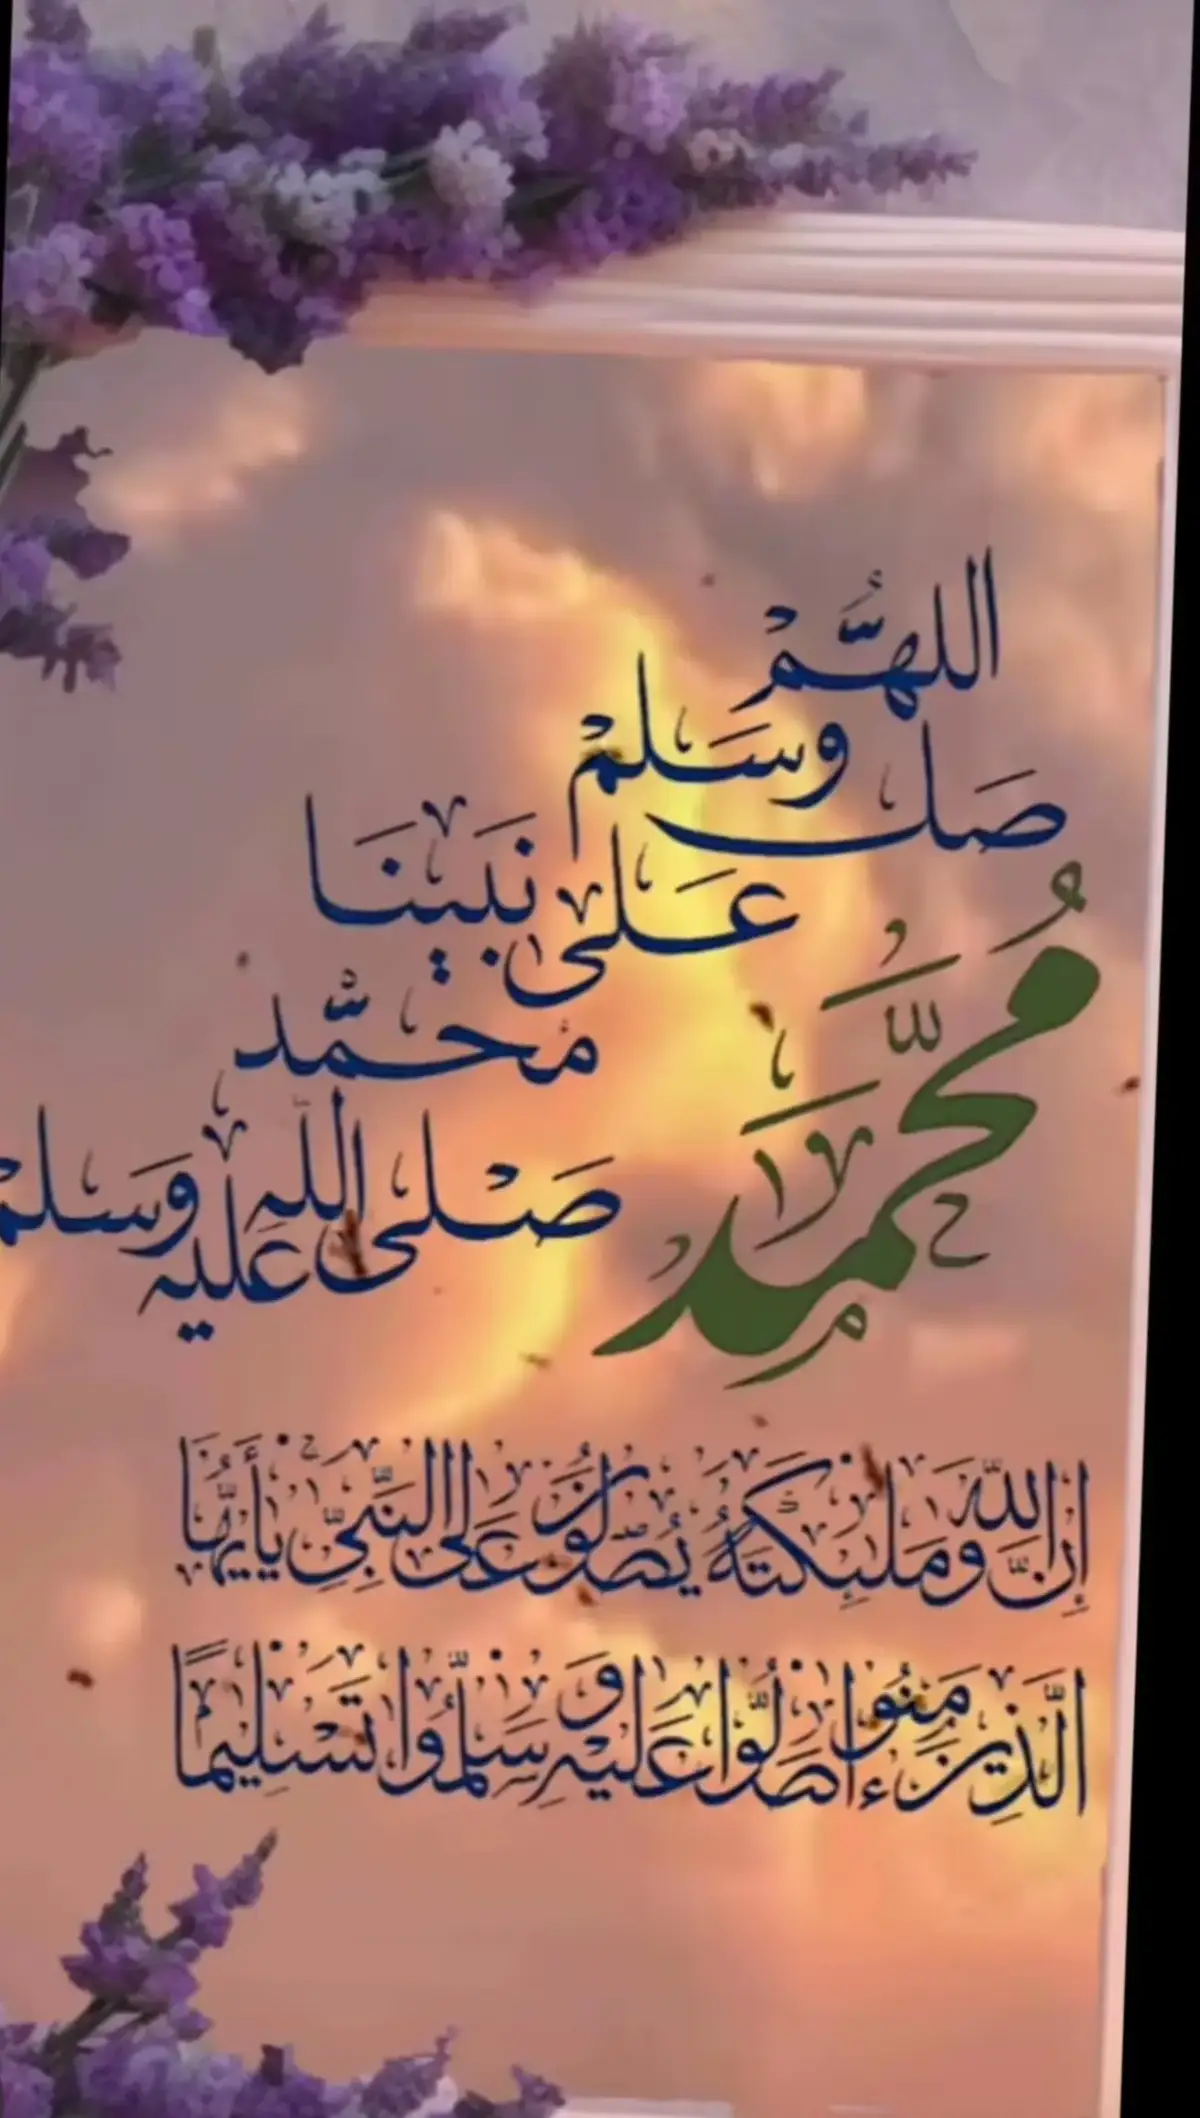 اللهُمَّ
صَلِ وَسَلِمْ
عَلَى نَبَيْنَا
مُحمَّد
مُحَمَّد
صَلى اللَّه عَليه وَسَلمْ
إِنَّ اللَّهَ وَمَلَٰٓئِكَتَهُۥ يُصَلُّونَ عَلَى ٱلنَّبِيِّ يَٰٓأَيُّهَا
ٱلَّذِينَ ءَامَنُوا۟ صَلُّوا۟ عَلَيْهِ وَسَلِّمُوا۟ تَسْلِيمًا